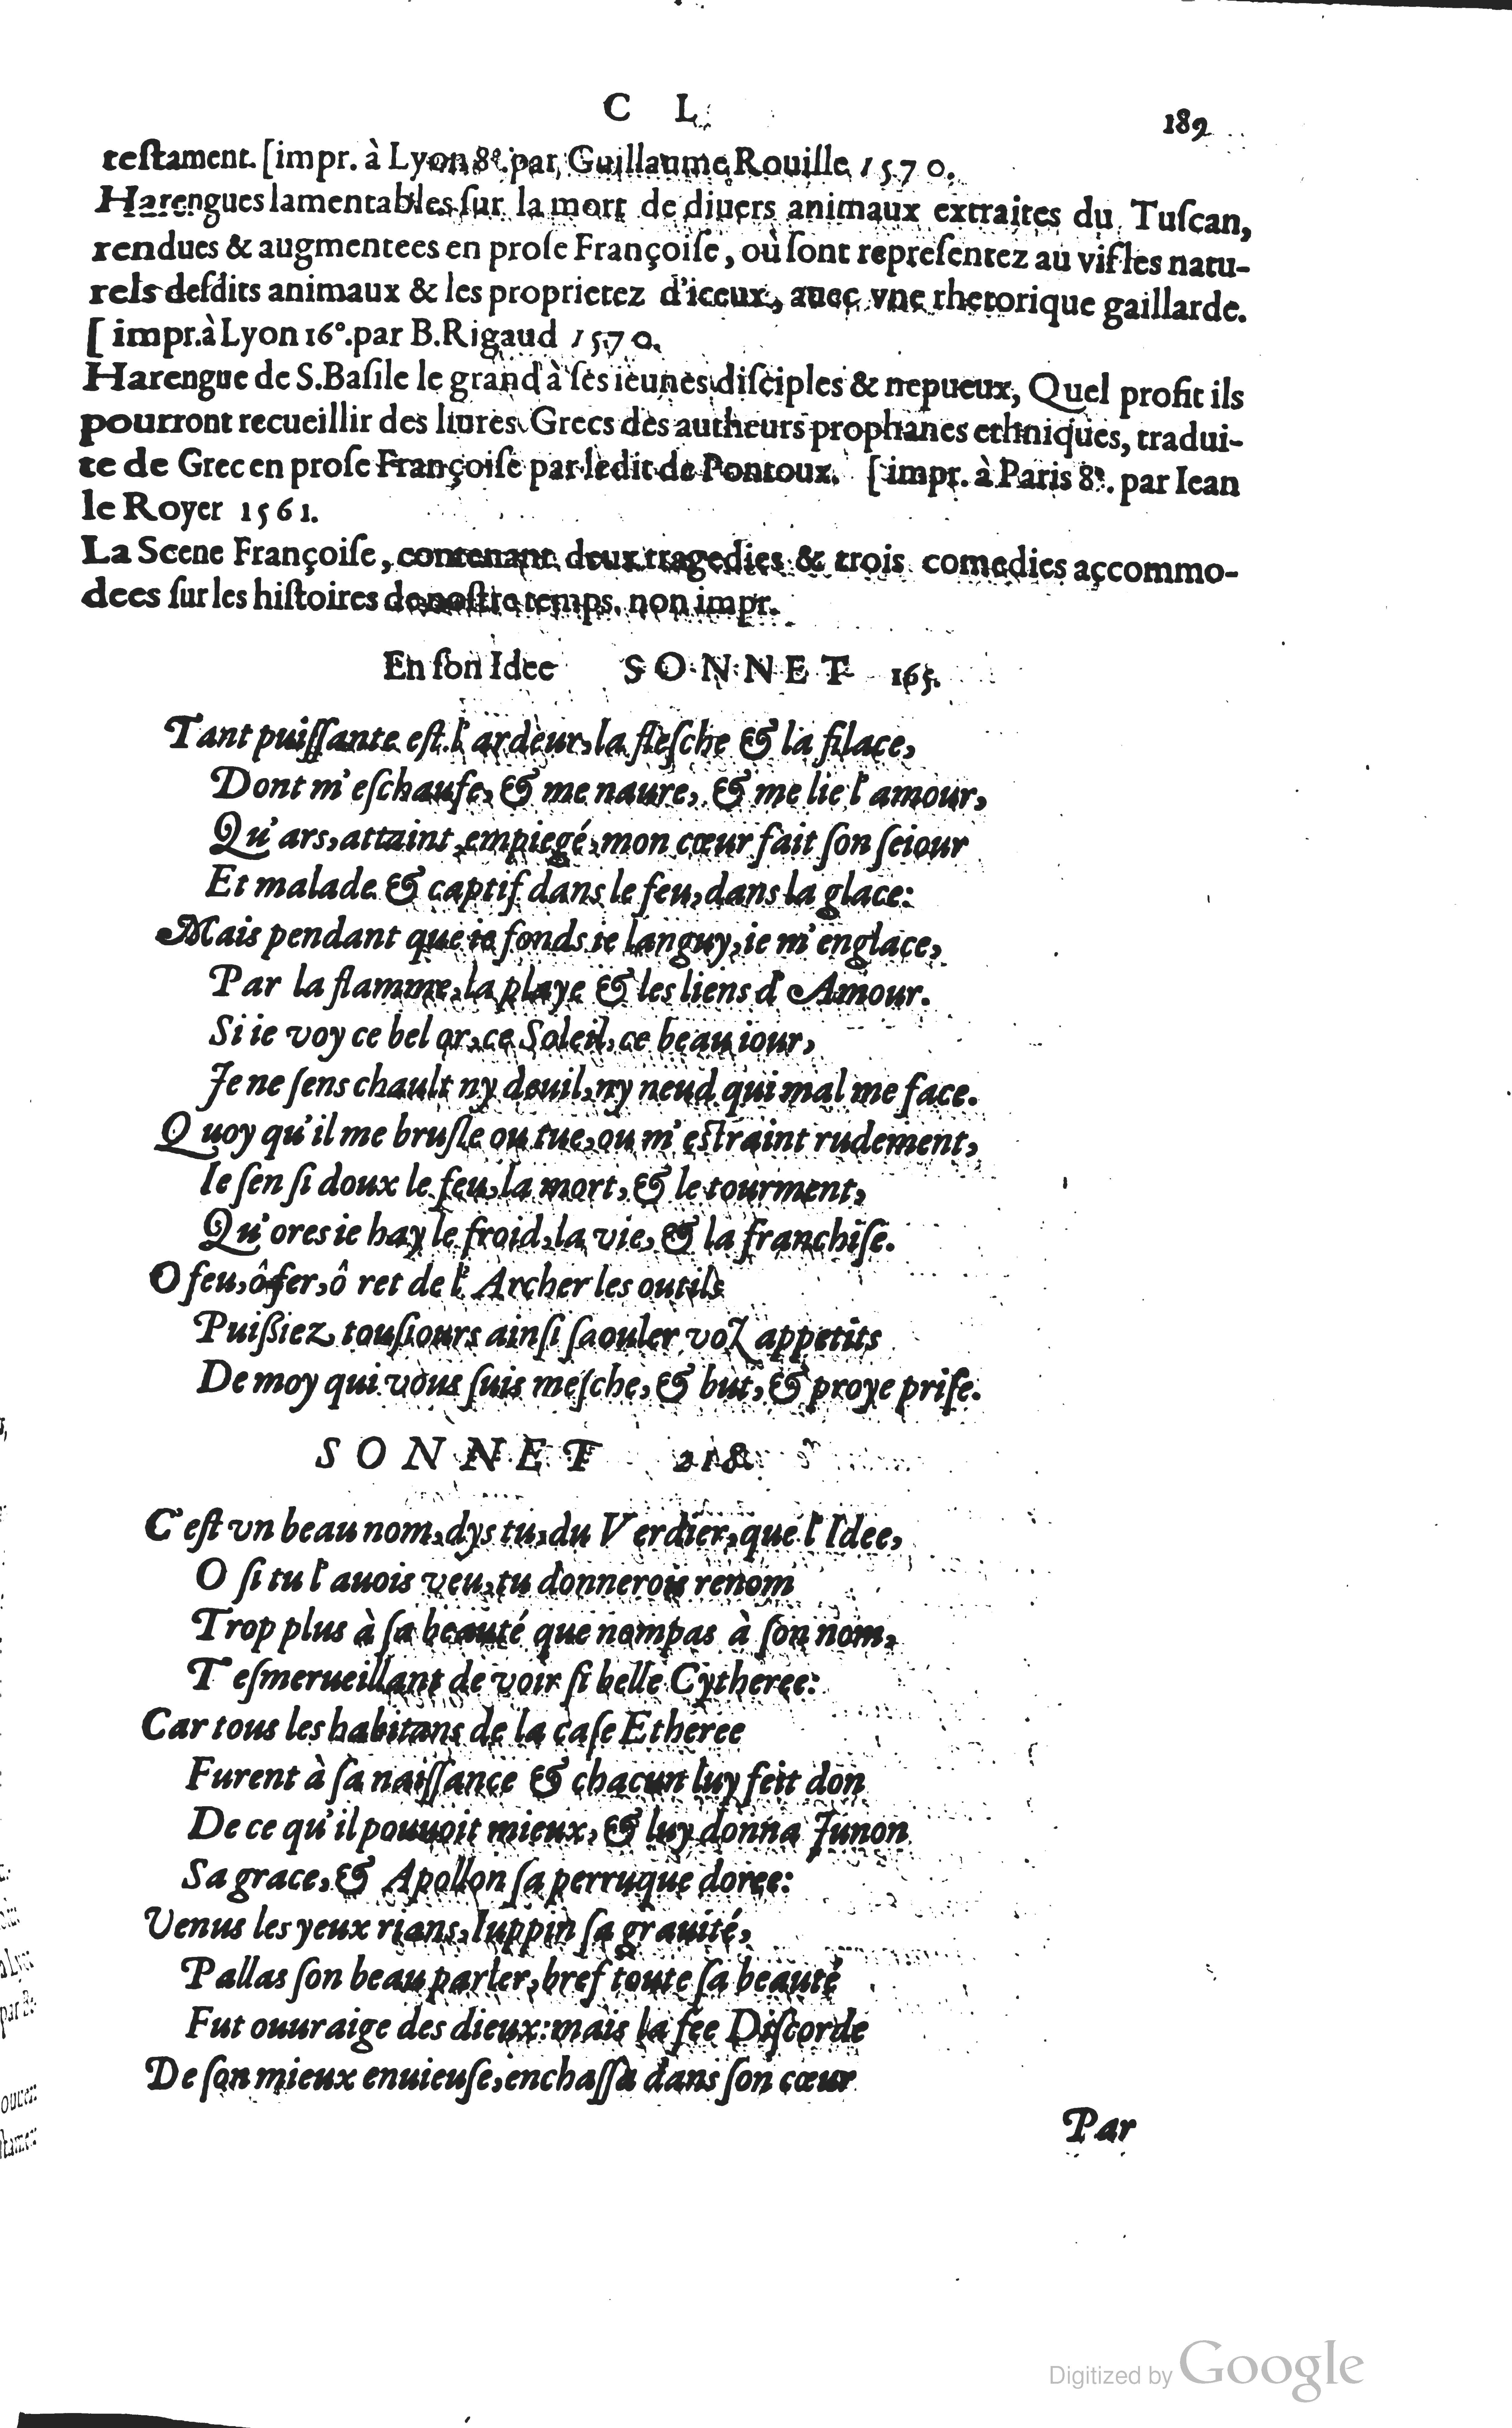 C L
189
teſtament. [impr. à Lyon 8°. par, Guillaume Rouille 1570.
Harengues lamentables ſur la mort de diuers animaux extraites du Tuſcan,
rendues & augmentees en proſe Françoiſe, où ſont repreſentez au vif les natu-
rels deſdits animaux & les proprietez d'iceux, auec vne rhetorique gaillarde.
[ impr. à Lyon 16°. par B. Rigaud 1570.
Harengue de S. Baſile le grand à ſes ieunes diſciples & nepueux, Quel profit ils
pourront recueillir des liures Grecs des autheurs prophanes ethniques, tradui-
te de Grec en proſe Françoiſe par ledit de Pontoux. [impr. à Paris 8°. par Iean
le Royer 1561.
La Scene Françoiſe, contenant deux tragedies & trois comedies accommo-
dees ſur les hiſtoires de noſtre temps. non impr.
En ſon Idee SONNET 165.
Tant puiſſante eſt l'ardeur, la fleſche & la filace,
Dont m'eſchaufe, & me naure, & me lie l'amour,
Qu'ars, attaint, empiegé, mon cœur fait ſon ſeiour
Et malade & captif dans le feu, dans la glace:
Mais pendant que ie fonds ie languy, ie m'englace,
Par la flamme, la playe & les liens d'Amour.
Si ie voy ce bel or, ce Soleil, ce beau iour,
Je ne ſens chault ny deuil, ny neud qui mal me face.
Quoy qu'il me bruſle ou tue, ou m'eſtraint rudement,
Ie ſen ſi doux le feu, la mort, & le tourment,
Qu'ores ie hay le froid, la vie, & la franchiſe.
O feu, ô fer, ô ret de l'Archer les outils
Puißiez touſiours ainſi ſaouler voz appetits
De moy qui vous ſuis meſche, & but, & proye priſe.
SONNET 218.
C'eſt vn beau nom, dys tu, du Verdier, que l'Idee,
O ſi tu l'auois veu, tu donnerois renom
Trop plus à ſa beauté que nompas à ſon nom,
T'eſmerueillant de voir ſi belle Cytheree:
Car tous les habitans de la caſe Etheree
Furent à ſa naiſſance & chacun luy feit don
De ce qu'il pouuoit mieux, & luy donna Junon
Sa grace, & Apollon ſa perruque doree:
Venus les yeux rians, Iuppin ſa grauité,
Pallas ſon beau parler, bref toute ſa beauté
Fut ouuraige des dieux: mais la fee Diſcorde
De ſon mieux enuieuſe, enchaſſa dans ſon cœur
Par
Digitized by Google